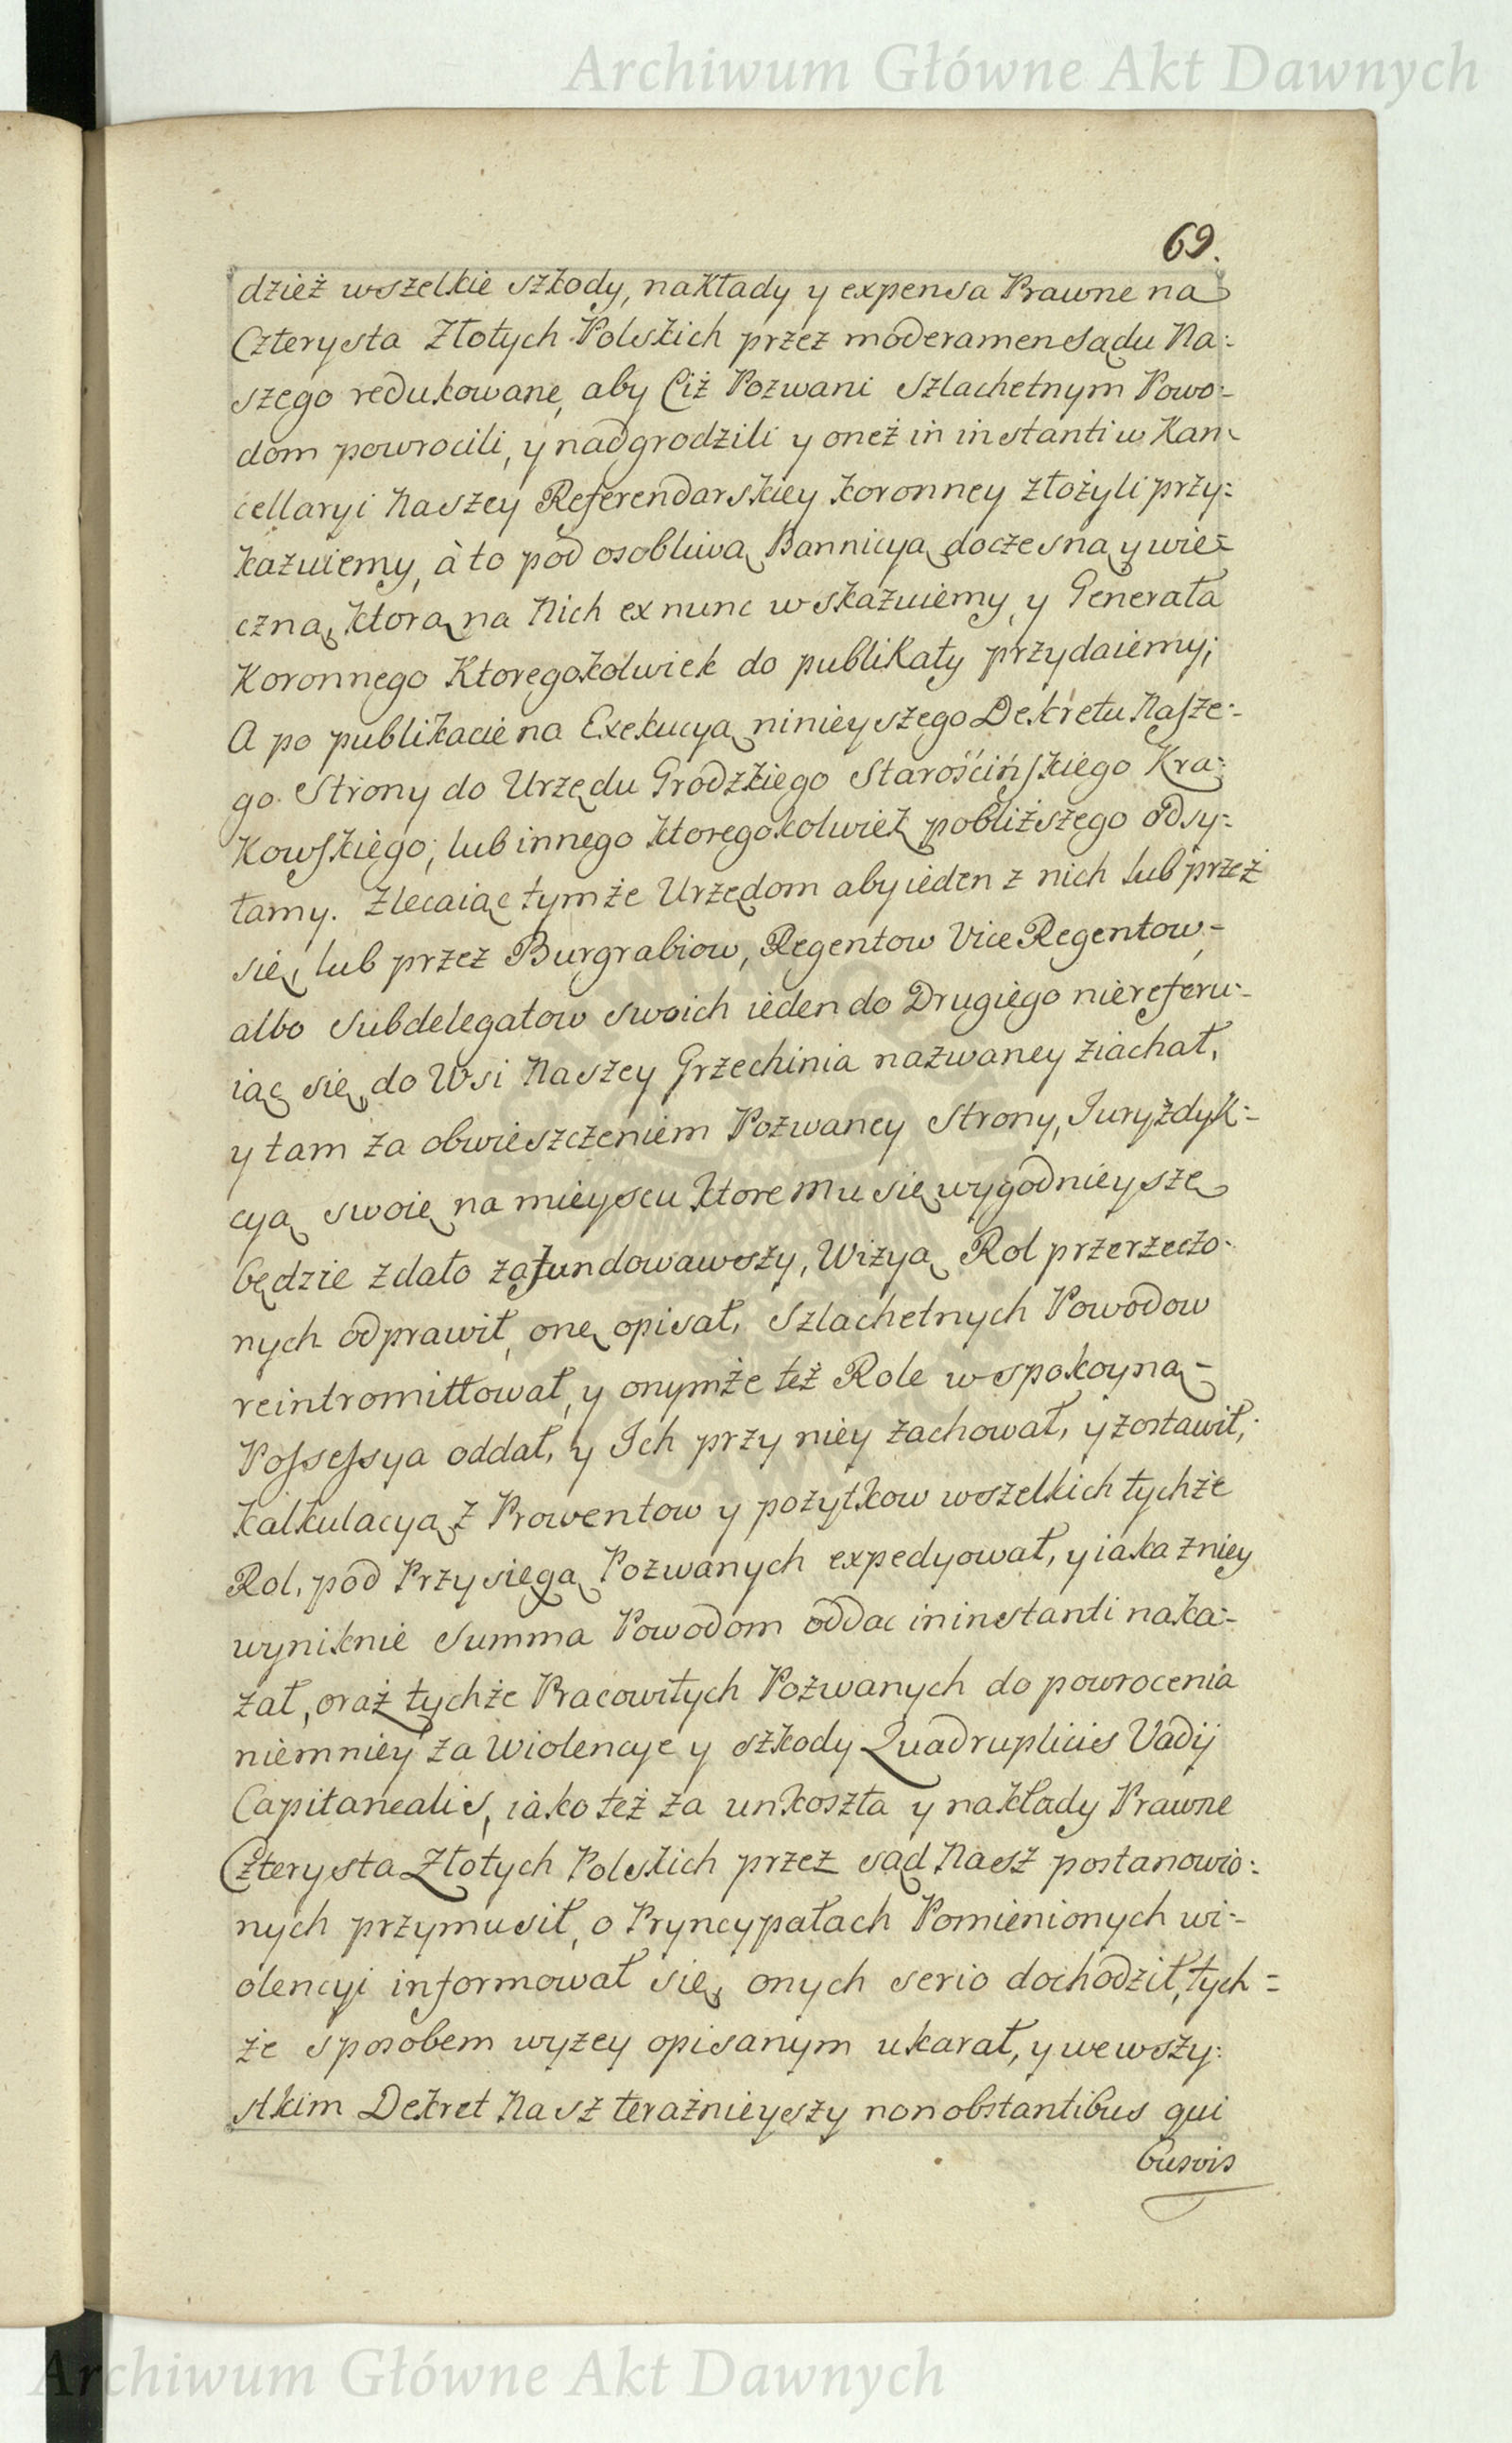 Archiwum Główne Akt Dawnych
69.
dzież wszelkie szkody, nakłady y expensa Prawne na
Czterysta Złotych Polskich przez moderamen sądu Na:
szego redukowane, aby Ciż Pozwani Szlachetnym Powo-
dom powrocili, y nadgrodzili y oneż in instanti w Kan-
cellaryi Naszey Referendarskiey koronney złożyli przy:
kazuiemy, à to pod osobliwą Bannicyą doczesną y wie=
czną, ktorą na Nich ex nunc wskazuiemy, y Generała
Koronnego Ktoregokolwiek do publikaty przydaiemy;
A po publikacie na Exekucyą ninieyszego Dekretu Nasze:
go Strony do Urzędu Grodzkiego Starościńskiego Kra:
Kowskiego, lub innego ktoregokolwiek pobliższego odsy:
łamy. Zlecaiąc tymże Urzędom aby ieden z nich lub przez
się, lub przez Burgrabiow, Regentow Vice Regentow,-
albo subdelegatow swoich ieden do Drugiego niereferu:
iąc się, do Wsi Naszey Grzechinia nazwaney ziachał,
y tam za obwieszczeniem Pozwaney Strony, Juryzdyk:
cyą swoię na mieyscu ktore mu się wygodnieysze
będzie zdało zafundowawszy, Wizyą Rol przerzeczo-
nych odprawił, onę opisał, Szlachetnych Powodow
reintromittował, y onymże też Role w spokoyną-
Possessya oddał, y Ich przy niey zachował, y zostawił,
kalkulacyą z Prowentow y pożytkow wszelkich tychże
Rol, pod Przysięgą Pozwanych expedyował, y iaka z niey
wyniknie summa Powodom oddac in instanti naka:
zał, oraz tychże Pracowitych Pozwanych do powrocenia
niemniey za wiolencye y szkody Quadruplicis Vadij
Capitanealis, iako też za unkoszta y nakłady Prawne
Czterysta Złotych Polskich przez sąd Nasz postanowio:
nych przymusił, o Pryncypałach Pomienionych wi:
olencyi informował się, onych serio dochodził, tych=
że sposobem wyżey opisanym ukarał, y we wszy:
stkim Dekret Nasz teraznieyszy non obstantibus qui
busvis
Archiwum Główne Akt Dawnych